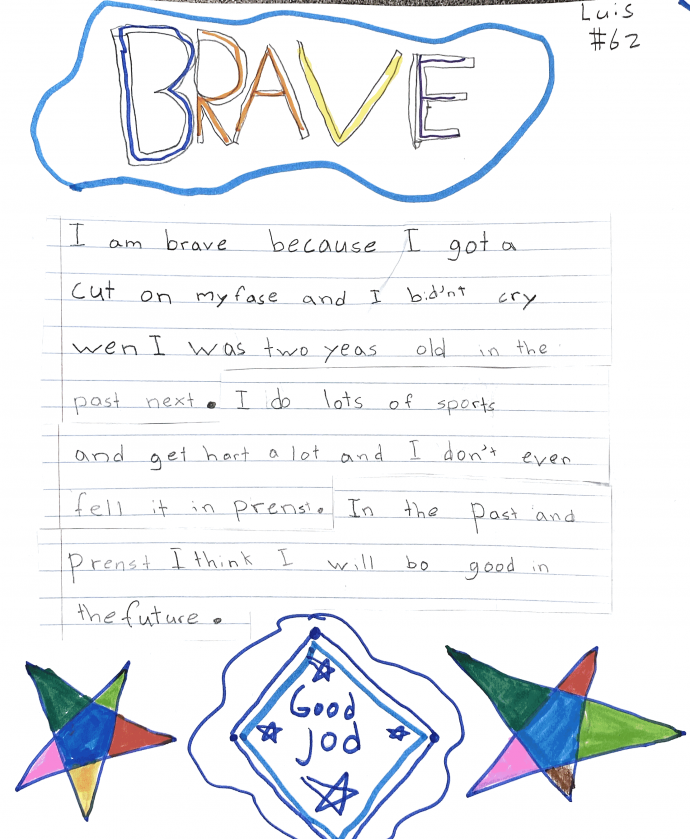 Luis
#62
BRAVE
I am brave because I got a
cut on my fase and I bidn't cry
wen I was two yeas old in the
past next. I do lots of sports
and get hart a lot and I don't ever
fell it in prensi. In the past and
prenst I think I will bo good in
the future.
Good
jod